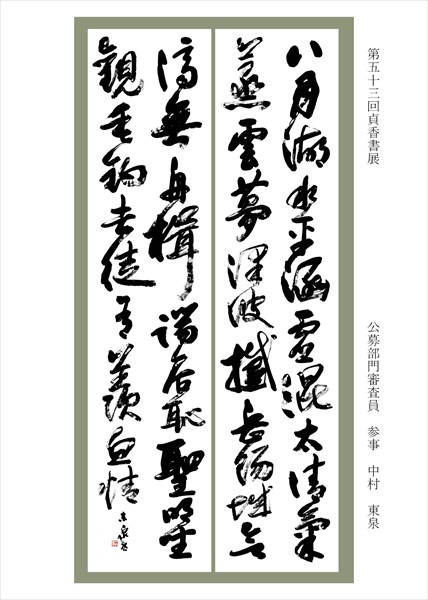 第五十三回貞香書展
公募部門審査員　参事　中村　東泉
八月湖水平涵虚混太清氣
蒸雲夢澤波撼岳陽城欲
済無舟楫端居恥聖明坐
觀垂釣者徒有羨魚情
東泉書